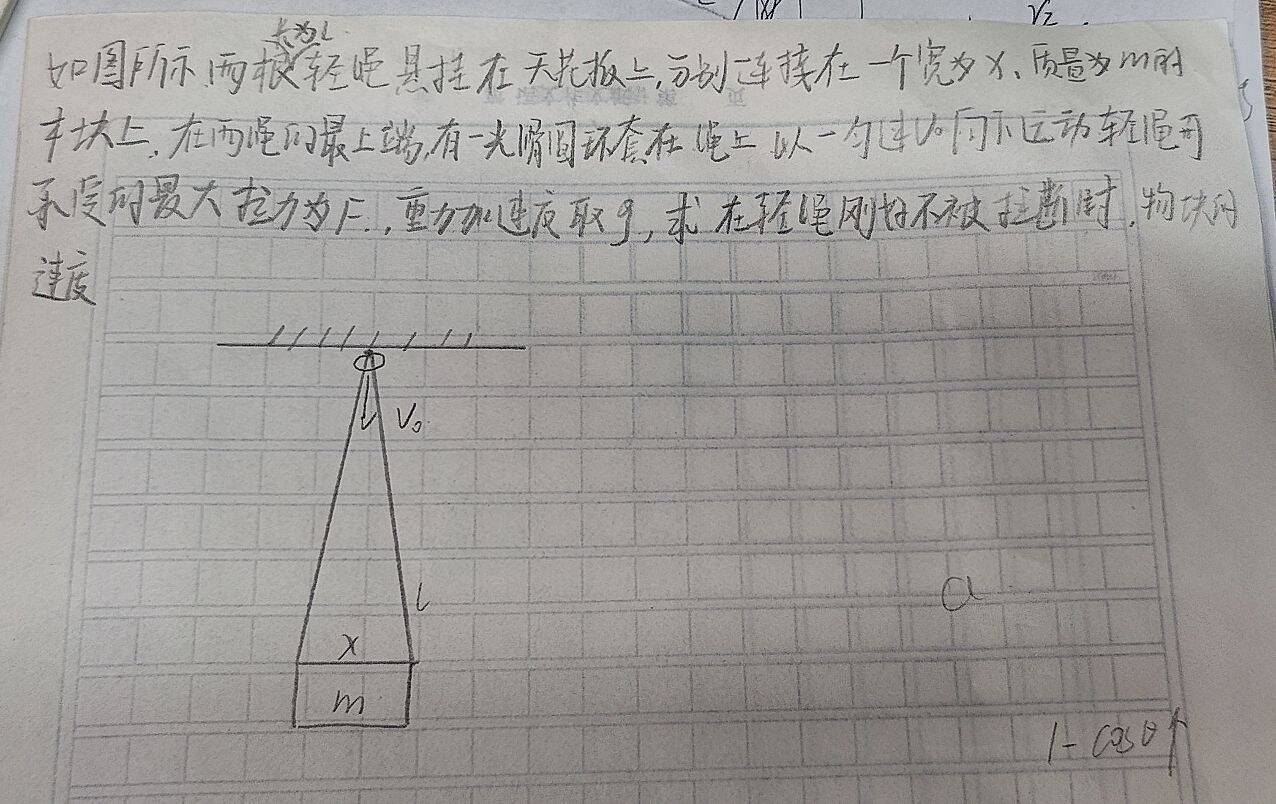 长为L
如图所示,两根轻绳悬挂在天花板上,分别连接在一个宽为x、质量为m的
木块上,在两绳的最上端,有一光滑圆环套在绳上以一匀速V₀向下运动轻绳可
承受的最大拉力为F.,重力加速度取g,求在轻绳刚好不被拉断时,物块的
速度
V₀
L
x
m
a
1-cosθ↑
V₂